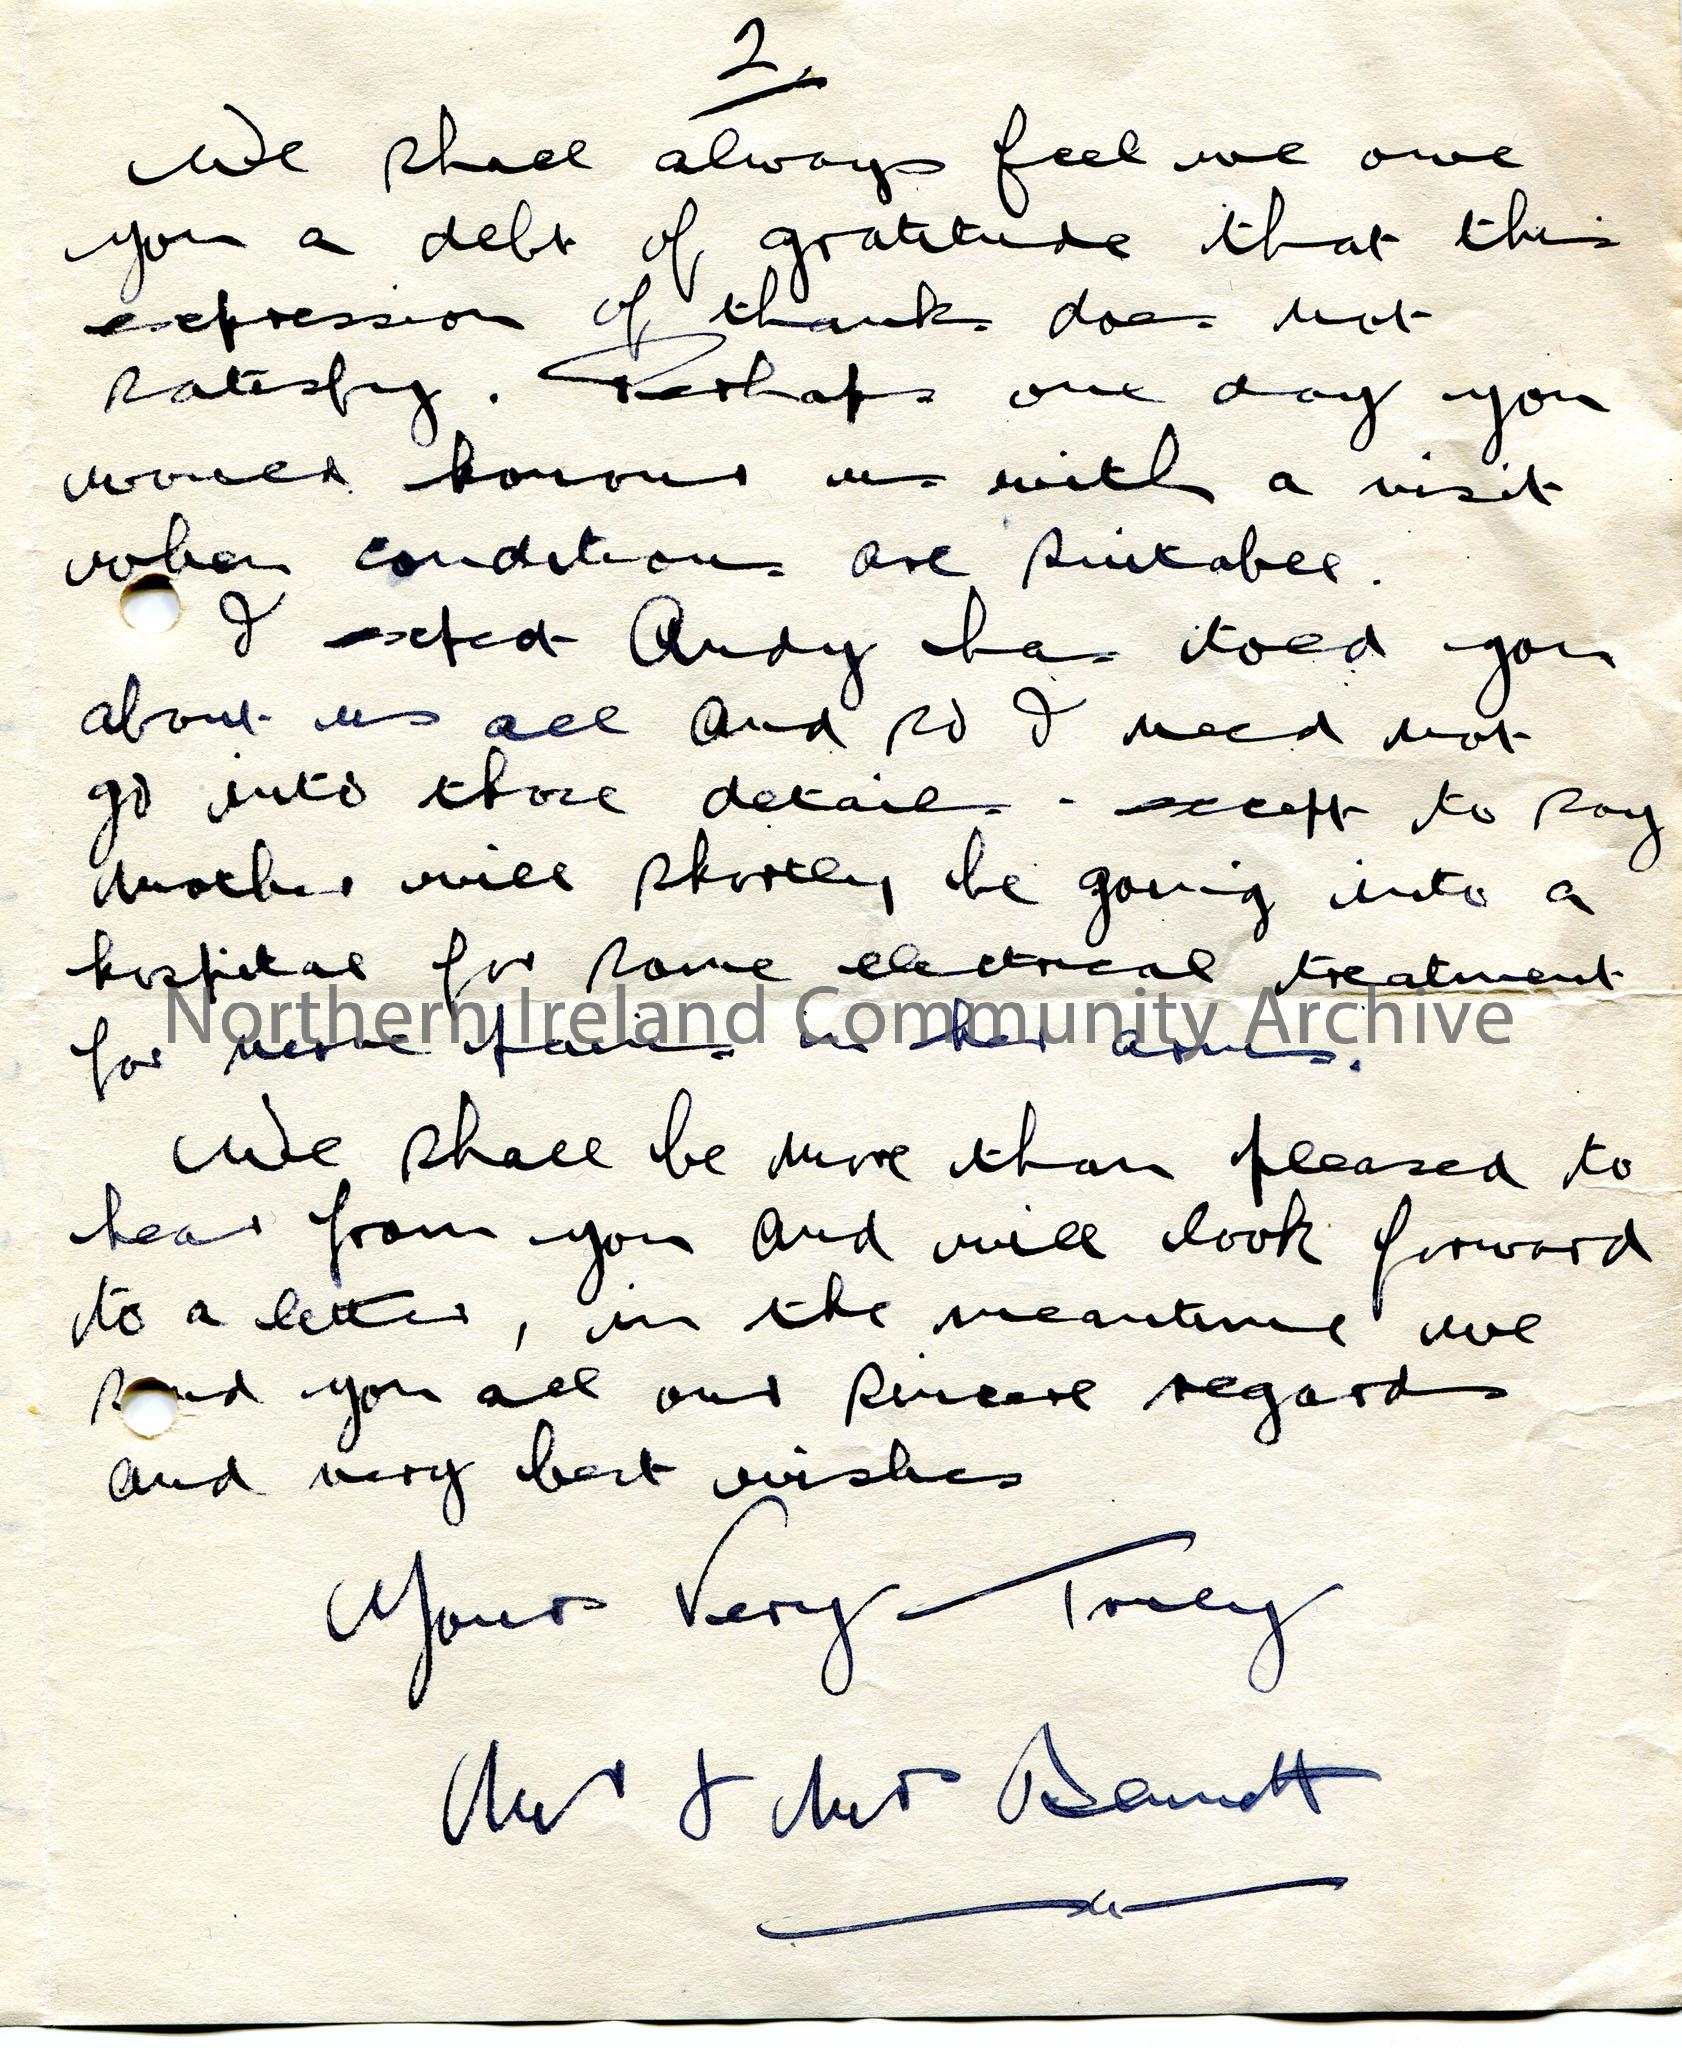 2.
We shall always feel we owe
you a debt of gratitude that this
expression of thanks does not
satisfy. Perhaps one day you
would honour us with a visit
when conditions are suitable.
I expect Andy has told you
about us all and so I need not
go into those details - except to say
mother will shortly be going into a
hospital for some electrical treatment
Northern Ireland Community Archive
for nerve pains in her arms.
We shall be more than pleased to
hear from you and will look forward
to a letter, in the meantime we
send you all our sincere regards
and very best wishes
Yours Very Truly
Mr & Mrs